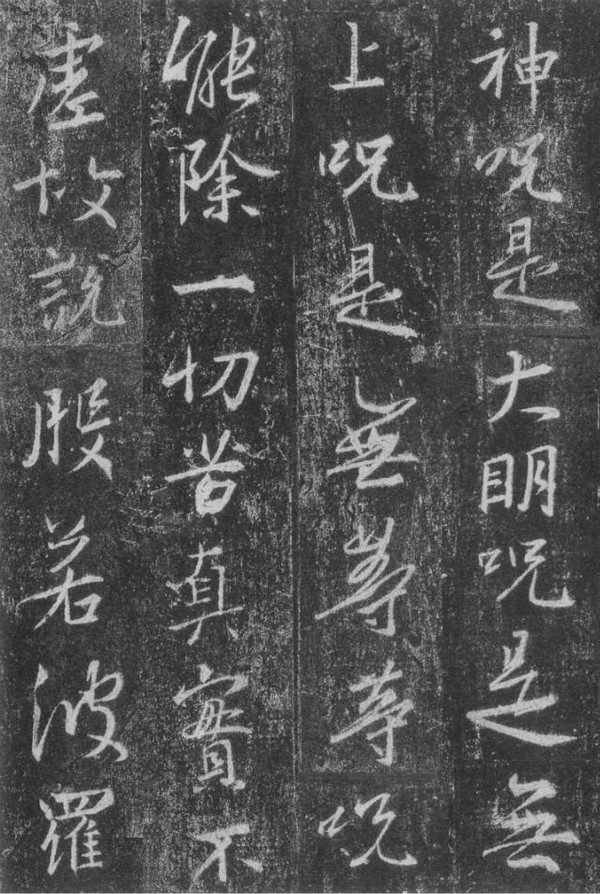 神呪是大明呪是無
上呪是無等等呪
能除一切苦真實不
虛故說般若波羅